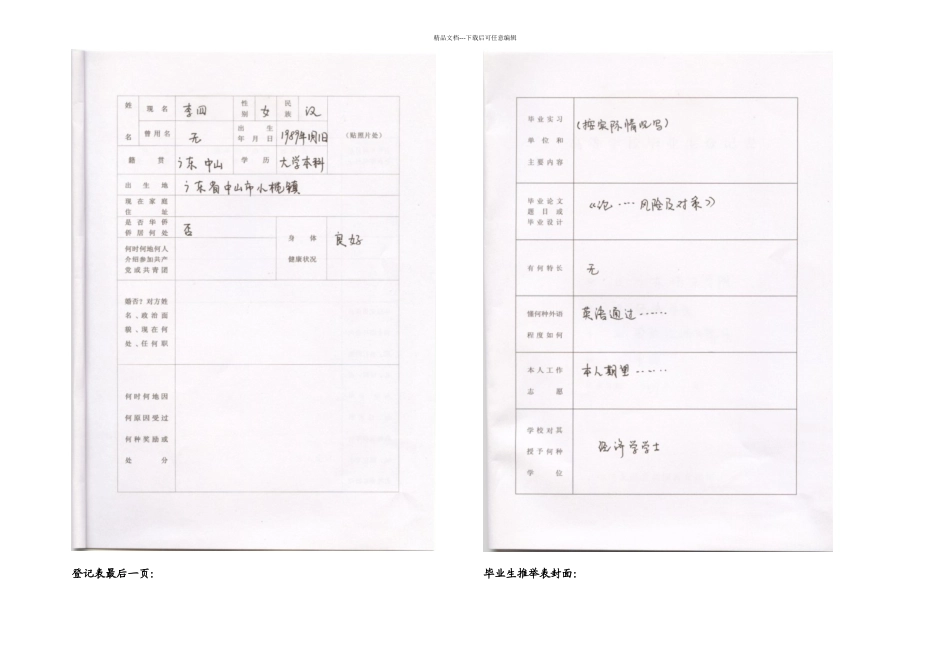 精品文档---下载后可任意编辑
姓 名
现 名
李四
性 别
女
民 族
汉
(贴照片处)
曾用名
无
出 生
年 月 日
1989年1月1日
籍 贯
广东 中山
学 历
大学本科
出 生 地
广东省中山市小榄镇
现 在 家 庭
住 址
是 否 华 侨
侨 居 何 处
否
身 体
健康状况
良好
何时何地何人
介绍参加共产
党 或 共 青 团
婚否?对方姓
名、政治面
貌、现在何
处、任何职
何时何地因
何原因受过
何种奖励或
处 分
毕业实习
单 位 和
主要内容
(按实际情况写)
毕业论文
题 目 或
毕业设计
《论……风险及对策》
有何特长
无
懂何种外语
程度如何
英语通过……
本人工作
志 愿
本人期望……
学校对其
授予何种
学 位
经济学学士
登记表最后一页:
毕业生推举表封面: